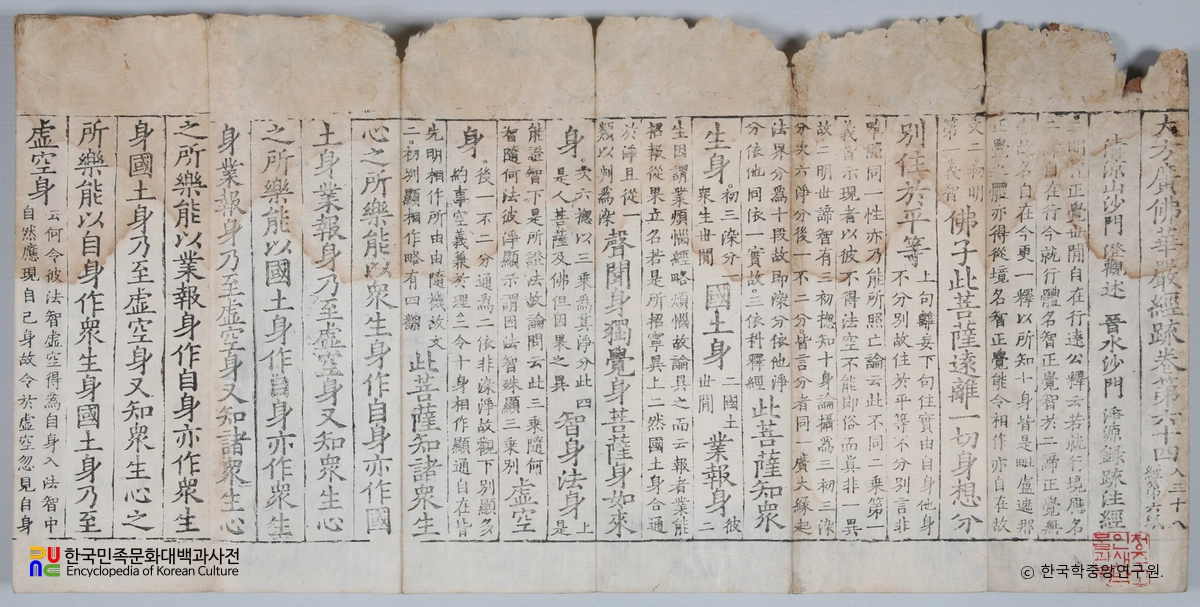 大方廣佛華嚴經䟽卷第六十四
清凉山沙門 澄觀述 晉水沙門 淨源錄疏注經
正覺世間自在行遠公釋云若就行境應名
自在行今就行體名智正覺智於二諦正覺無
名自在今更一釋以所知十身皆是毗盧遮那
正覺 體亦得從境名智正覺能令相作亦自在故
佛子此菩薩遠離一切身想分
別住於平等 上句離妄下句住實由自身他身
不分別故住於平等不分別言非
照同一性亦乃能所照亡論云此不同二乘第一
義智示現者以彼不得法空不能即俗而真非一異
故二明世諦智有三初揔知十身論攝為三初三染
分次六淨分後一不二分皆言分者同一廣大緣起
法界分為十段故即染分依他淨
分依他同依一實故三依科釋經 此菩薩知衆
生身 初三染分一衆生世間 國土身 二國土世間 業報身 彼二
生因謂業煩惱經略煩惱故論具之而云報者業能
招報從果立名若是所招寧異上二然國土身合通
於淨且從一
類以判為染 聲聞身獨覺身菩薩身如來
身 次六揔以三乘為其淨分此四
是人菩薩及佛但因果之異 智身法身 上是
能證智下是所證法故論問云此三乘隨何
智隨何法彼淨顯示謂因法智殊顯三乘別 虛空
身 後一不二分通為二依非染淨故觀下別顯多
約事空義兼於理二令十身相作顯通自在皆
先明相作所由由隨機故文
二初別顯相作略有四類 此菩薩知諸衆生
心之所樂能以衆生身作自身亦作國
土身業報身乃至虛空身又知衆生心
之所樂能以國土身作自身亦作衆生
身業報身乃至虛空身又知諸衆生心
之所樂能以業報身作自身亦作衆生
身國土身乃至虛空身又知衆生心之
所樂能以自身作衆生身國土身乃至
虛空身 云何令彼法智虛空得為自身入法智中
自然應現自己身故令於虛空忽見自身
한국민족문화대백과사전
Encyclopedia of Korean Culture
© 한국학중앙연구원.